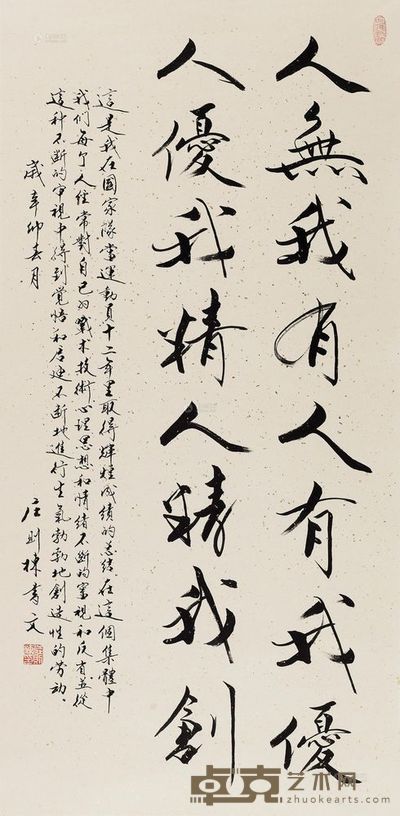 人無我有人有我優
人優我精人精我創
這是我在國家隊當運動員十二年里取得輝煌成績的总結在這個集體中
我们每个人经常對自己的戰术技術心理思想和情緒不断的审視和反省並從
這种不断的审視中得到覺悟和启迪不断地進行生氣勃勃地創造性的劳动、
歲辛卯春月
庄则棟書文
卓克艺术网
zhuokearts.com